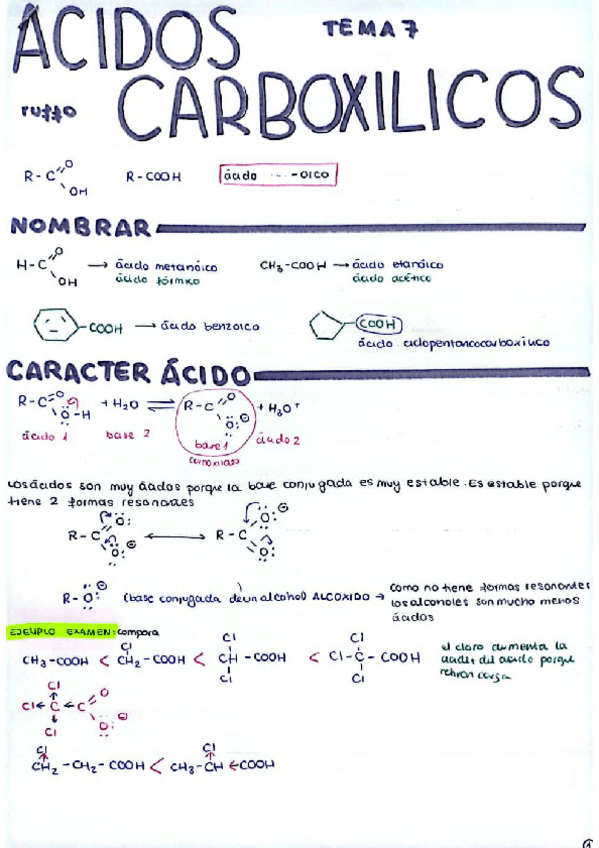 TEMA 7
ÁCIDOS
CARBOXILICOS
R-C=O OH R-COOH ácido ---- -OICO
NOMBRAR
H-C=O OH → ácido metanóico CH3-COOH → ácido etanóico
ácido fórmico ácido acético
-COOH → ácido benzoico COOH
ácido ciclopentanocarboxilico
CARACTER ÁCIDO
R-C=O O-H + H2O ⇌ R-C=O O:⊖ + H3O+
ácido 1 base 2 base 1 ácido 2
carboxilato
Los ácidos son muy ácidos porque la base conjugada es muy estable. Es estable porque
tiene 2 formas resonantes
R-C O: O:⊖ ↔ R-C O:⊖ O:
R-O:⊖ (base conjugada de un alcohol) ALCOXIDO → Como no tiene formas resonantes
los alcoholes son mucho menos
ácidos
EJEMPLO EXAMEN: compara
CH3-COOH < Cl CH2-COOH < Cl CH Cl -COOH < Cl Cl-C- Cl COOH
el cloro aumenta la
acidez del ácido porque
retiran carga
Cl
Cl←C←C O
Cl O:⊖
Cl CH2-CH2-COOH < CH3-CH Cl ←COOH
1